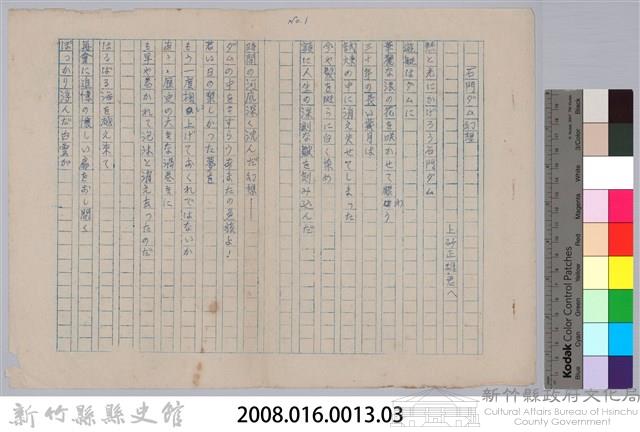 No.1
石門ダム幻想
上砂正雄兄へ
悠々と光にかげろう石門ダム
遊艇はダムに
華麗な浪の花を咲かせて賑わう
三十年の長い歳月は
試煉の中に消え失せてしまった
今や髪を斑らに白く染め
額に人生の深刻な皺を刻み込んだ
時間の河底深く沈んだ幻想——
ダムの中をさすらうあまたの英骸よ！
若い日の楽しかった夢を
もう一度掬い上げておくれではないか
歴史の大きな渦巻きに
も早や巻かれて泡沫と消え去ったのだ
はるばる海を越え来て
無量に追憶の懐しい扇をおし開く
ぽっかり浮んだ白雲が
新竹縣縣史館
2008.016.0013.03
新竹縣政府文化局
Cultural Affairs Bureau of Hsinchu
County Government
Kodak Color Control Patches
Blue
Cyan
Green
Yellow
Red
Magenta
White
3/Color
Black